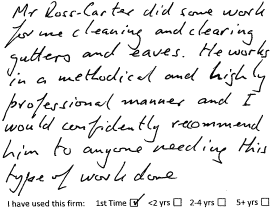 Mr Ross-Carter did some work
for me cleaning and clearing
gutters and eaves. He works
in a methodical and highly
professional manner and I
would confidently recommend
him to anyone needing this
type of work done
I have used this firm: 1st Time ☑ <2 yrs ☐ 2-4 yrs ☐ 5+ yrs ☐